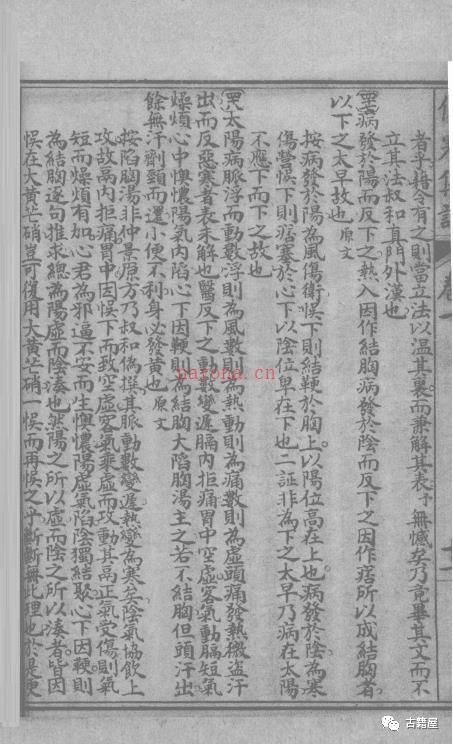 者乎藉令有之則當立法以温其裏而兼解其表予無憾矣乃竟畢其文而不
立其法叔和真門外漢也
病發於陽而反下之熱入因作結胸病發於陰而反下之因作痞所以成結胸者
以下之太早故也 原文
按病發於陽為風傷衛悞下則結鞕於胸上以陽位高在上也病發於陰為寒
傷營悞下則痞塞於心下以陰位卑在下也二証非為下之太早乃病在太陽
不應下而下之故也
太陽病脈浮而動數浮則為風數則為熱動則為痛數則為虛頭痛發熱微盜汗
出而反惡寒者表未解也醫反下之動數變遲膈內拒痛胃中空虛客氣動膈短氣
燥煩心中懊憹陽氣內陷心下因鞕則為結胸大陷胸湯主之若不結胸但頭汗出
餘無汗劑頸而還小便不利身必發黃也 原文
按陷胸湯非仲景原方乃叔和偽撰其脈動數變遲熱變為寒矣陰氣協飲上
攻故膈內拒痛胃中因悞下而致空虛客氣乘虛而攻動其膈正氣受傷則氣
短而燥煩有加心君為邪逼不安而生懊憹陽虛氣陷陰獨結聚心下因鞕則
為結胸逐句推求總為陽虛而陰湊也然陽之所以虛而陰之所以湊者皆因
悞在大黃芒硝豈可復用大黃芒硝一悞而再悞之乎斷斷無此理也於是更
卷
nayona.cn
古籍屋